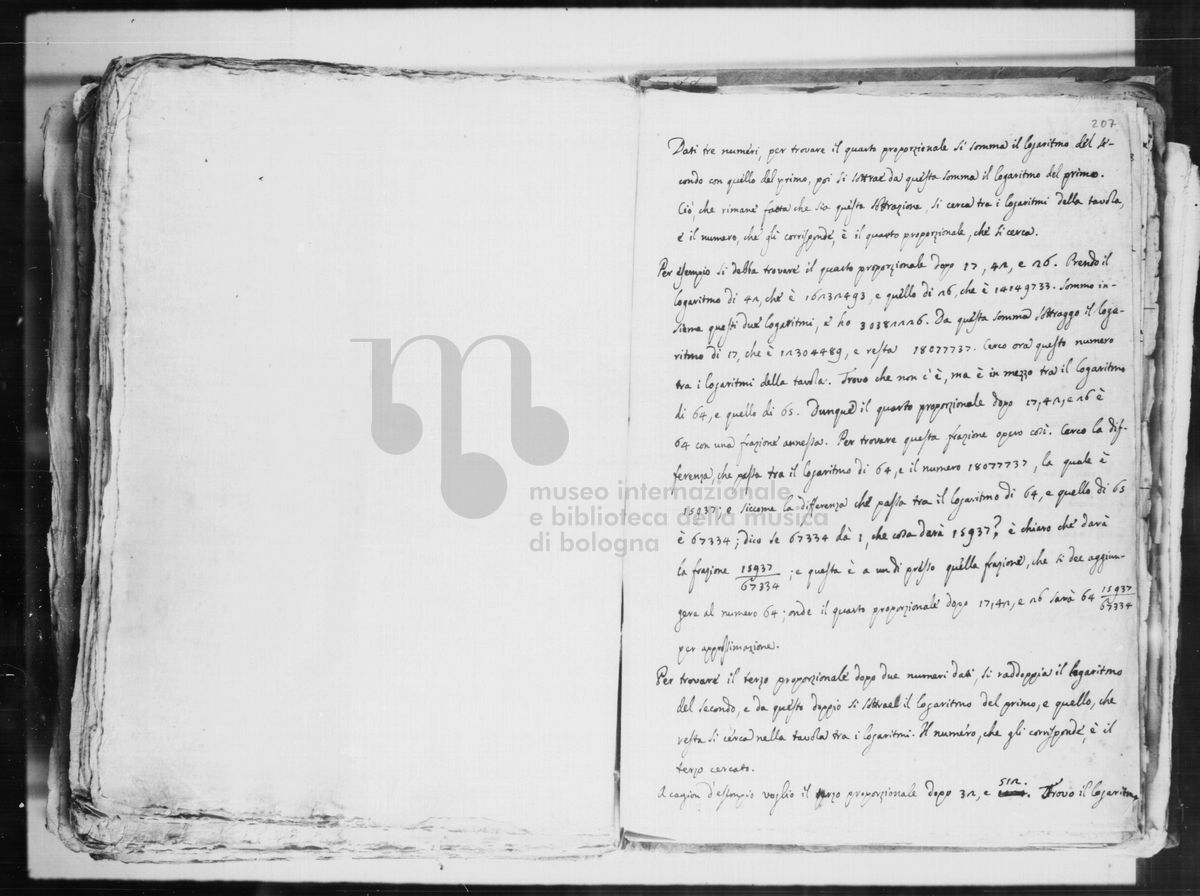 207
Dati tre numeri, per trovare il quarto proporzionale si somma il logaritmo del se-
condo con quello del primo, poi si sottrae da questa somma il logaritmo del primo.
Ciò, che rimane fatta che sia questa sottrazione, si cerca tra i logaritmi della tavola,
e il numero, che gli corrisponde, è il quarto proporzionale, che si cerca.
Per esempio si debba trovare il quarto proporzionale dopo 17, 42, e 26. Prendo il
logaritmo di 42, che è 16232493, e quello di 26, che è 14149733. Sommo in-
sieme questi due logaritmi, e ho 30382226. Da questa somma sottraggo il loga-
ritmo di 17, che è 12304489, e resta 18077737. Cerco ora questo numero
tra i logaritmi della tavola. Trovo che non c'è, ma è in mezzo tra il logaritmo
di 64, e quello di 65. Dunque il quarto proporzionale dopo 17, 42, e 26 è
64 con una frazione annessa. Per trovare questa frazione opero così. Cerco la dif-
ferenza, che passa tra il logaritmo di 64, e il numero 18077737, la quale è
15937; e siccome la differenza che passa tra il logaritmo di 64, e quello di 65
è 67334; dico se 67334 dà 1, che cosa darà 15937? è chiaro che darà
la frazione 15937/67334; e questa è a un di presso quella frazione, che si dee aggiun-
gere al numero 64; onde il quarto proporzionale dopo 17, 42, e 26 sarà 64 15937/67334
per approssimazione.
Per trovare il terzo proporzionale dopo due numeri dati, si raddoppia il logaritmo
del secondo, e da questo doppio si sottrae il logaritmo del primo, e quello, che
resta si cerca nella tavola tra i logaritmi. Il numero, che gli corrisponde, è il
terzo cercato.
A cagion d'esempio voglio il terzo proporzionale dopo 32, e 512. Trovo il logaritmo
museo internazionale
e biblioteca della musica
di bologna